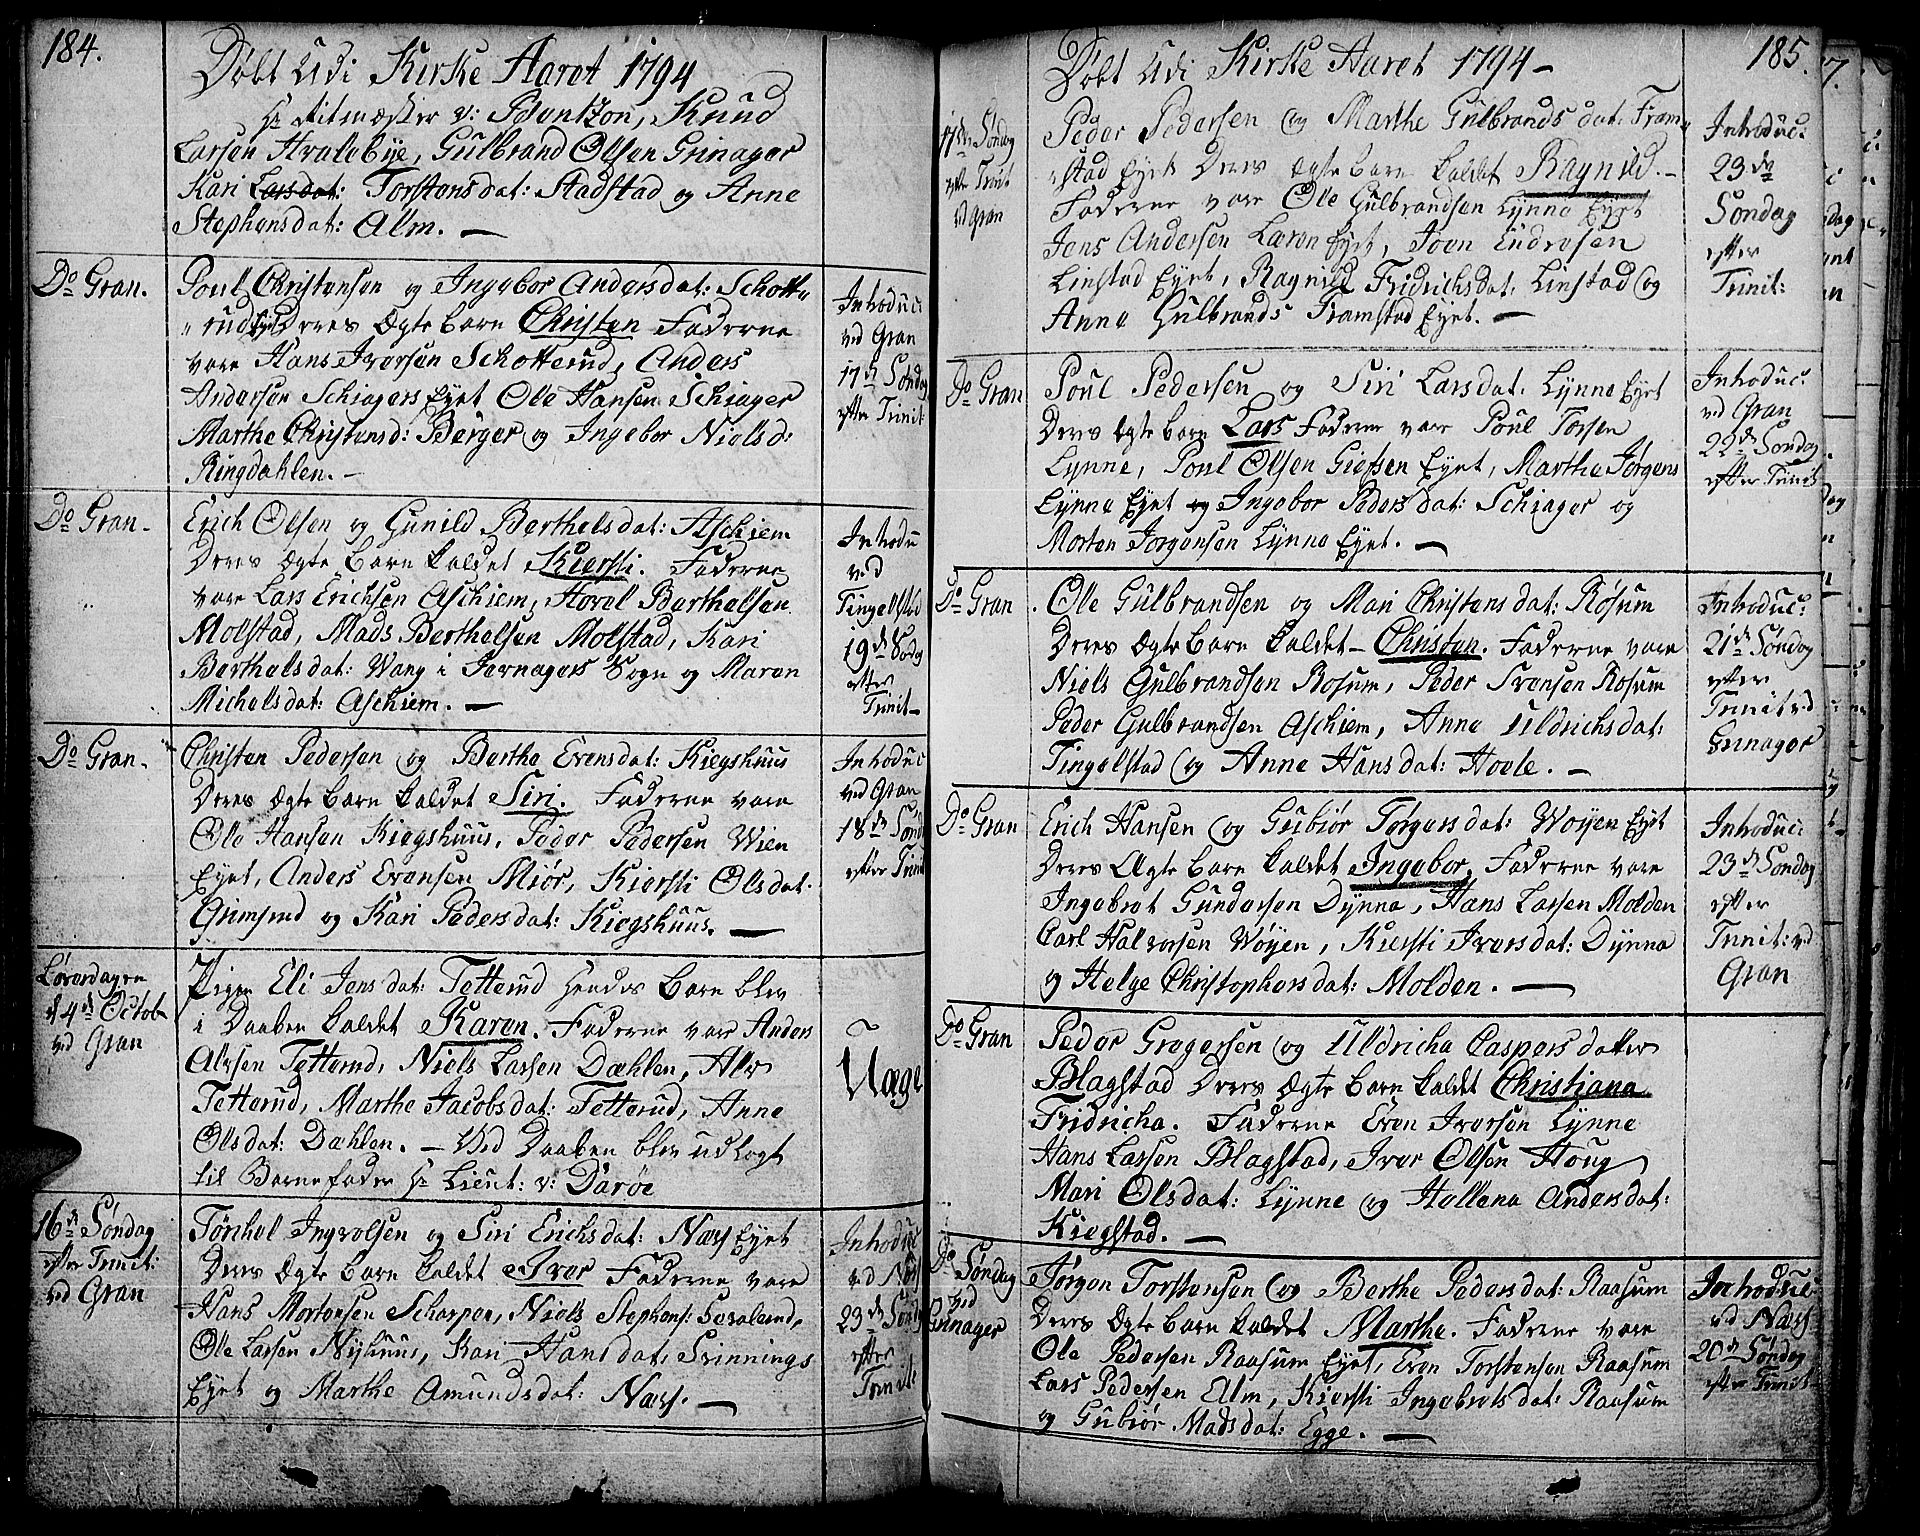 184.
Døbt Udi Kirke Aaret 1794
Hr Ritmester v: Bentzon, Knud
Larsen Hvalebye, Gulbrand Olsen Grinager
Kari Larsdat: Torstensdat: Stadstad og Anne
Stephensdat: Alm. —
Do Gran.
Poul Christensen og Ingebor Andersdat: Schotte
rud Eyet Deres Ægte Barn Christen Faderne
vare Hans Iversen Schotterud, Anders
Andersen Schiagers Eyet Ole Hansen Schiager
Marthe Christensd: Berger og Ingebor Nielsd:
Ringdahlen. —
Introduc:
ved Gran
17de Søndag
efter Trinit:
Do Gran.
Erich Olsen og Gunild Berthelsdat: Aschiem
Deres Ægte Barn kaldet Kiersti. Faderne
vare Lars Erichsen Aschiem, Hovel Berthelsen
Molstad, Mads Berthelsen Molstad, Kari
Berthelsdat: Wang i Jevnagers Sogn og Maren
Michelsdat: Aschiem. —
Introdu
ved
Tingelsted
19de Sødag
efter
Trinit
Do Gran.
Christen Pedersen og Berthe Evensdat: Kiegshuus
Deres Ægte Barn kaldet Siri. Faderne vare
Ole Hansen Kiegshuus, Peder Pedersen Wien
Eyet, Anders Evensen Miør, Kiersti Olsdat:
Grimsrud og Kari Pedersdat: Kiegshuus. —
Introduc
ved Gran
18de Sønd
efter Trinit
Løverdagen
d 4de Octob
ved Gran
Pigen Eli Jensdat: Tetterud Hendes Barn blev
i Daaben kaldet Karen. Faderne vare Anders
Alvsen Tetterud, Niels Larsen Dæhlen, Alv
Tetterud, Marthe Jacobsdat: Tetterud, Anne
Olsdat: Dæhlen. — Ved Daaben blev udlagt
til Barnefader Hr Lieut: v: Darøe
Uægte
16de Søndag
efter Trinit:
ved Gran
Tørchel Ingvolsen og Siri Erichsdat: Næss Eyet
Deres Ægte Barn kaldet Iver Faderne vare
Hans Mortensen Scharpen, Niels Stephens:
Ole Larsen Nyhuus, Kari Hansdat: Svinnings
Eyet og Marthe Amundsdat: Næss. —
Introduc
ved Næs
23de Sønd
efter
Trinit:
185.
Døbt Udi Kirke Aaret 1794 —
17de Søndag
efter Trinit
ved Gran
Peder Pedersen og Marthe Gulbrandsdat: Fram
stad Eyet Deres Ægte Barn kaldet Ragnild. —
Faderne vare Ole Gulbrandsen Lynne Eyet
Jens Andersen Læren Eyet, Joen Endresen
Linstad Eyet, Ragnild Fridrichsdat: Linstad og
Anne Gulbrands Framstad Eyet. —
Introduc:
23de
Søndag
efter
Trinit:
Do Gran
Poul Pedersen og Siri Larsdat: Lynne Eyet
Deres Ægte Barn Lars Faderne vare Poul Torsen
Lynne, Poul Olsen Giefsen Eyet, Marthe Jørgens
Lynne Eyet og Ingebor Pedersdat: Schiager og
Morten Jørgensen Lynne Eyet. —
Introduc:
ved Gran
22de Søndag
efter Trinit
Do Gran
Ole Gulbrandsen og Mari Christensdat: Røsum
Deres Ægte Barn kaldet — Christen. Faderne vare
Niels Gulbrandsen Rosum, Peder Svensen Rosum
Peder Gulbrandsen Aschiem, Anne Uldrichsdat:
Tingelstad og Anne Hansdat: Hoele. —
Introduc:
21de Søndag
efter
Trinit: ved
Grinager
Do Gran
Erich Hansen og Gubiør Torgersdat: Woyen Eyet
Deres Ægte Barn kaldet Ingebor, Faderne vare
Ingebret Gundersen Dynne, Hans Larsen Molden
Carl Halvorsen Wøyen, Kiersti Iversdat: Dynna
og Helge Christophersdat: Molden. —
Introduc:
23de Søndag
efter
Trinit: ved
Gran
Do Gran
Peder Gregersen og Uldricha Caspersdatter
Blagstad Deres Ægte Barn kaldet Christiana
Fridricha. Faderne Even Iversen Lynne
Hans Larsen Blagstad, Iver Olsen Houg
Mari Olsdat: Lynne og Hellena Andersdat:
Kiegstad. —
Do Søndag
ved
Grinager
Jørgen Torstensen og Berthe Pedersdat: Raasum
Deres Ægte Barn kaldet Marthe. Faderne vare
Ole Pedersen Raasum Eyet, Even Torstensen Raasum
Lars Pedersen Alm, Kiersti Ingebretsdat: Raasum
og Gubiør Madsdat: Egge. —
Introduc
ved Næss
20de Søndag
efter Trinit